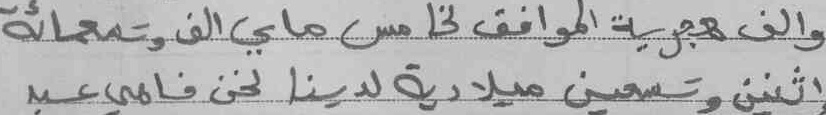 والف هجرية الموافق لخامس ماي الف وتسعمائة
إثنين وتسعين ميلادية لدينا نحن فاهمي عبد